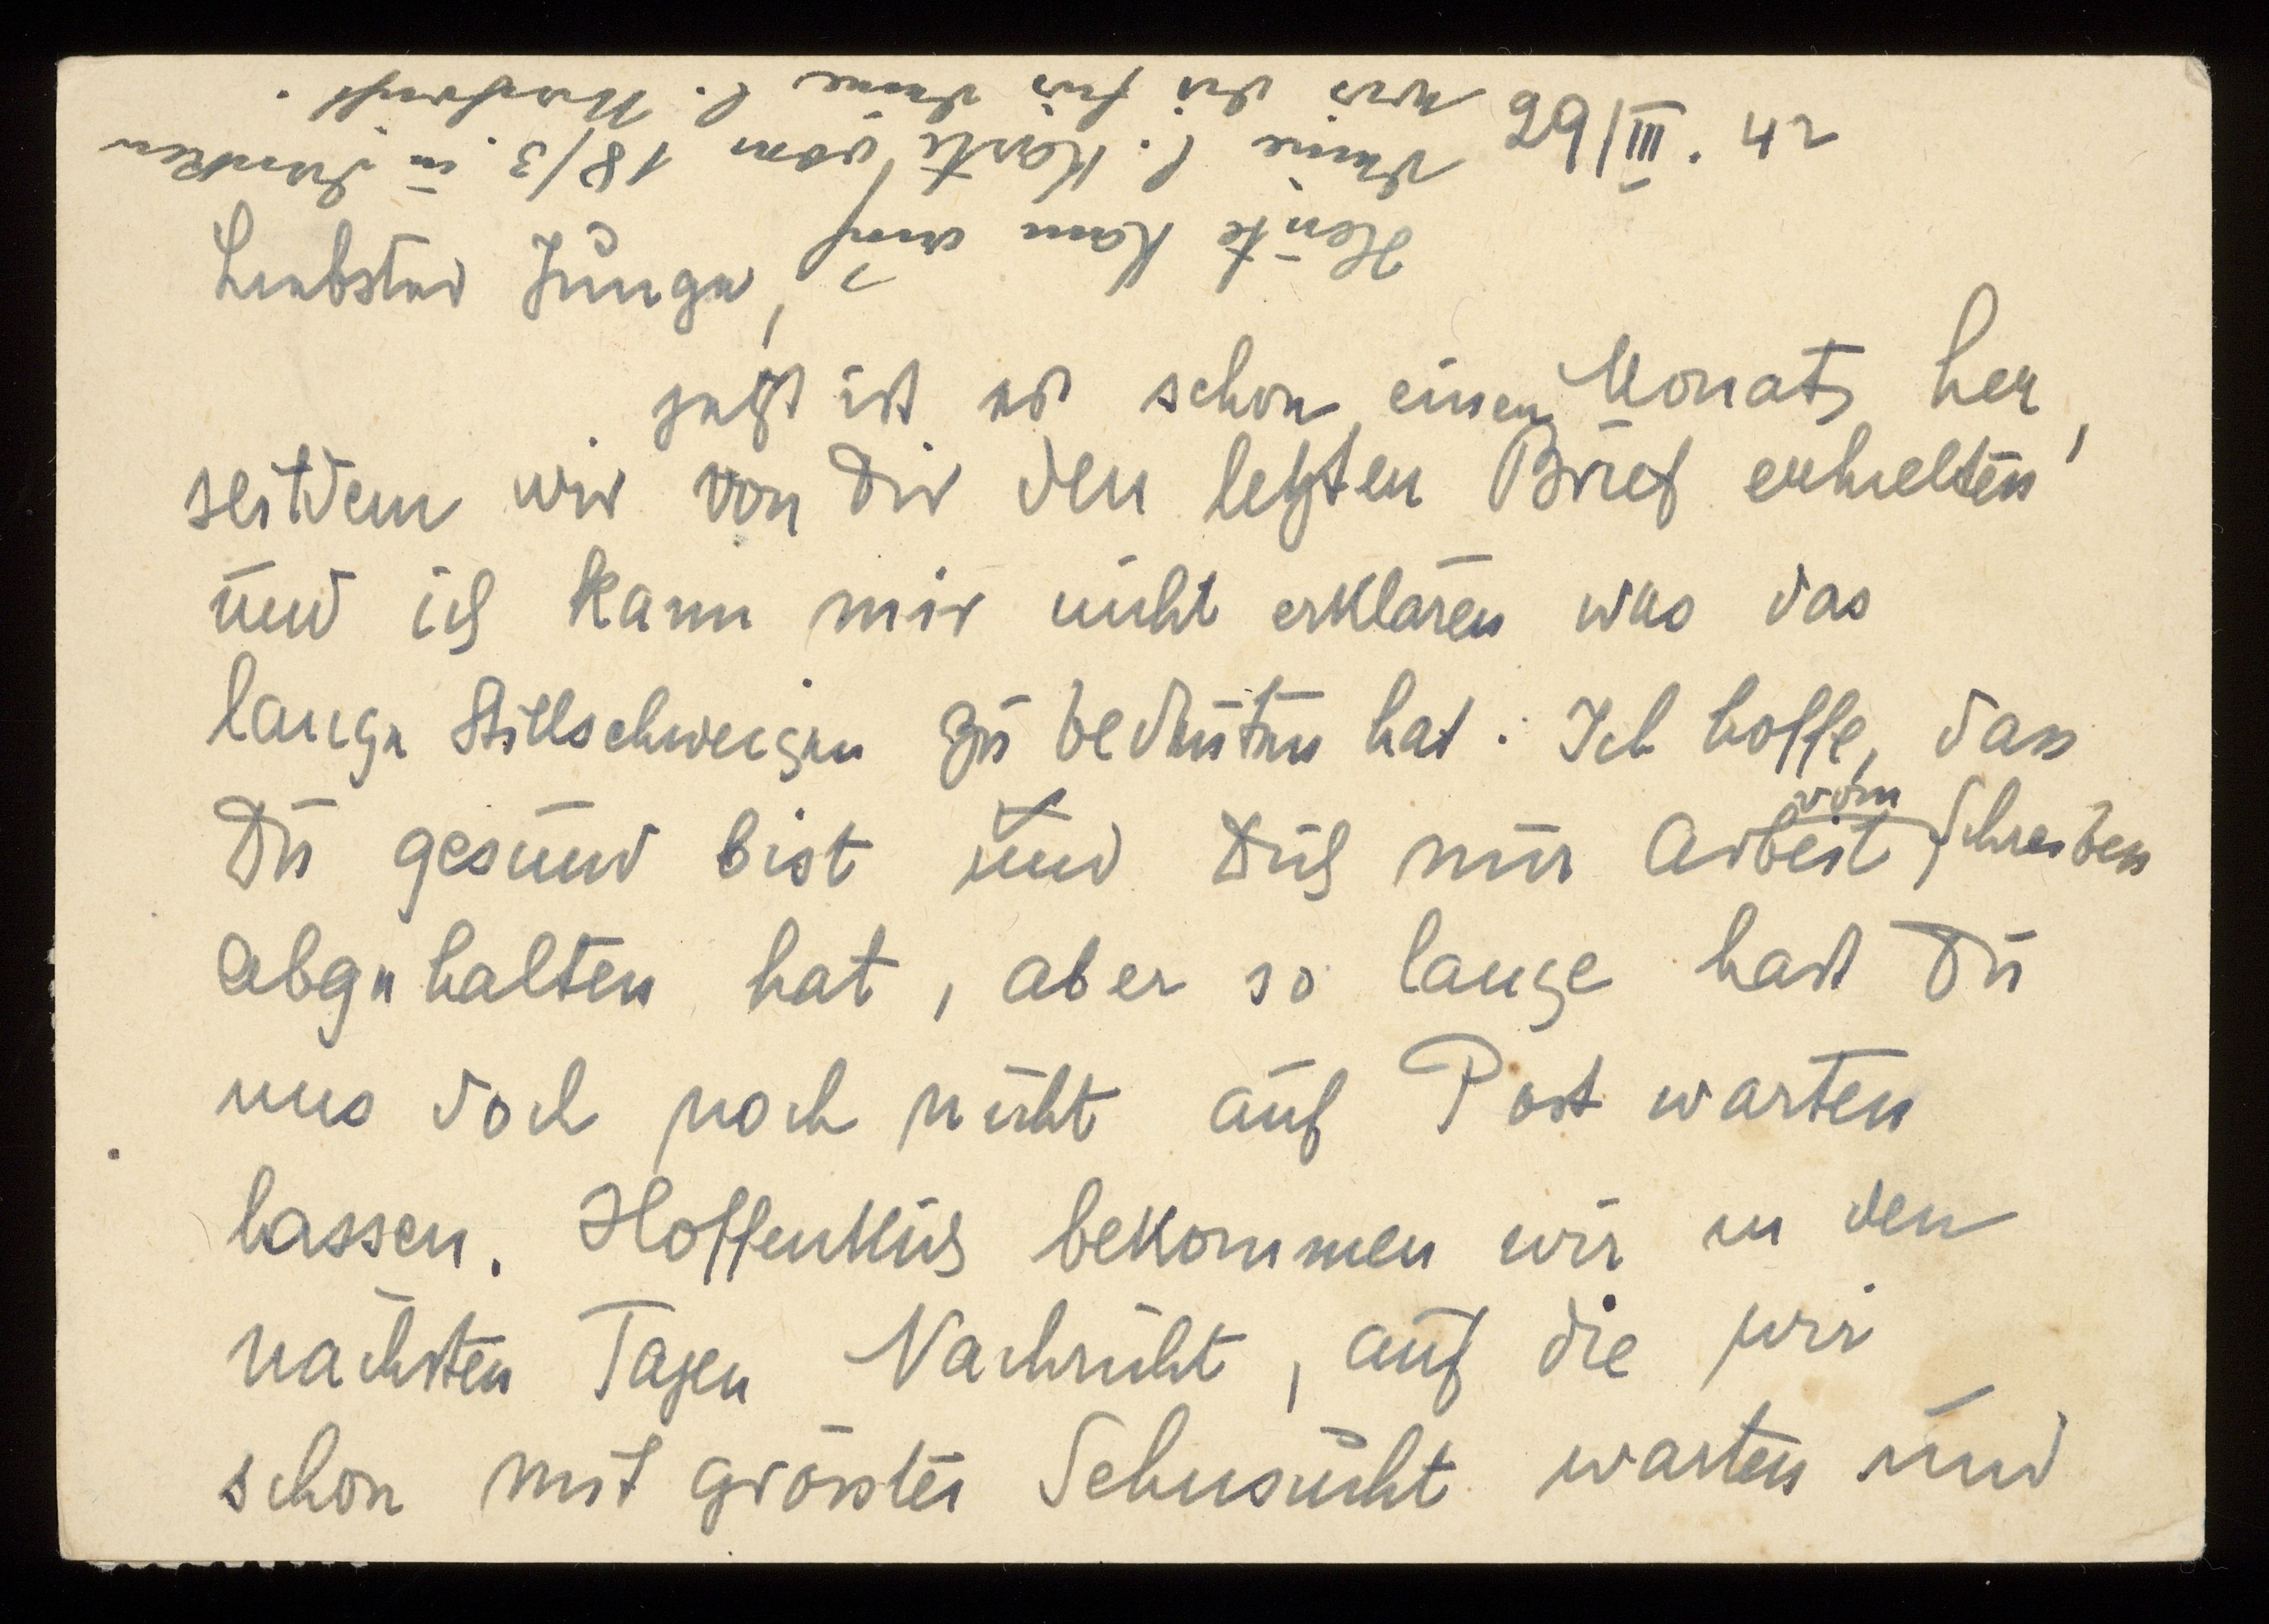 29/III. 42
Liebster Junge,
jetzt ist es schon einen Monat her,
seitdem wir von Dir den letzten Brief erhielten
und ich kann mir nicht erklären was das
lange Stillschweigen zu bedeuten hat. Ich hoffe, dass
Du gesund bist und Dich nur Arbeit vom Schreiben
abgehalten hat, aber so lange hast Du
uns doch noch nicht auf Post warten
lassen. Hoffentlich bekommen wir in den
nächsten Tagen Nachricht, auf die wir
schon mit grösster Sehnsucht warten und
Heute kam auch
Deine l. Karte vom 18/3. u danken
wir Dir für Deine l. Nachricht.